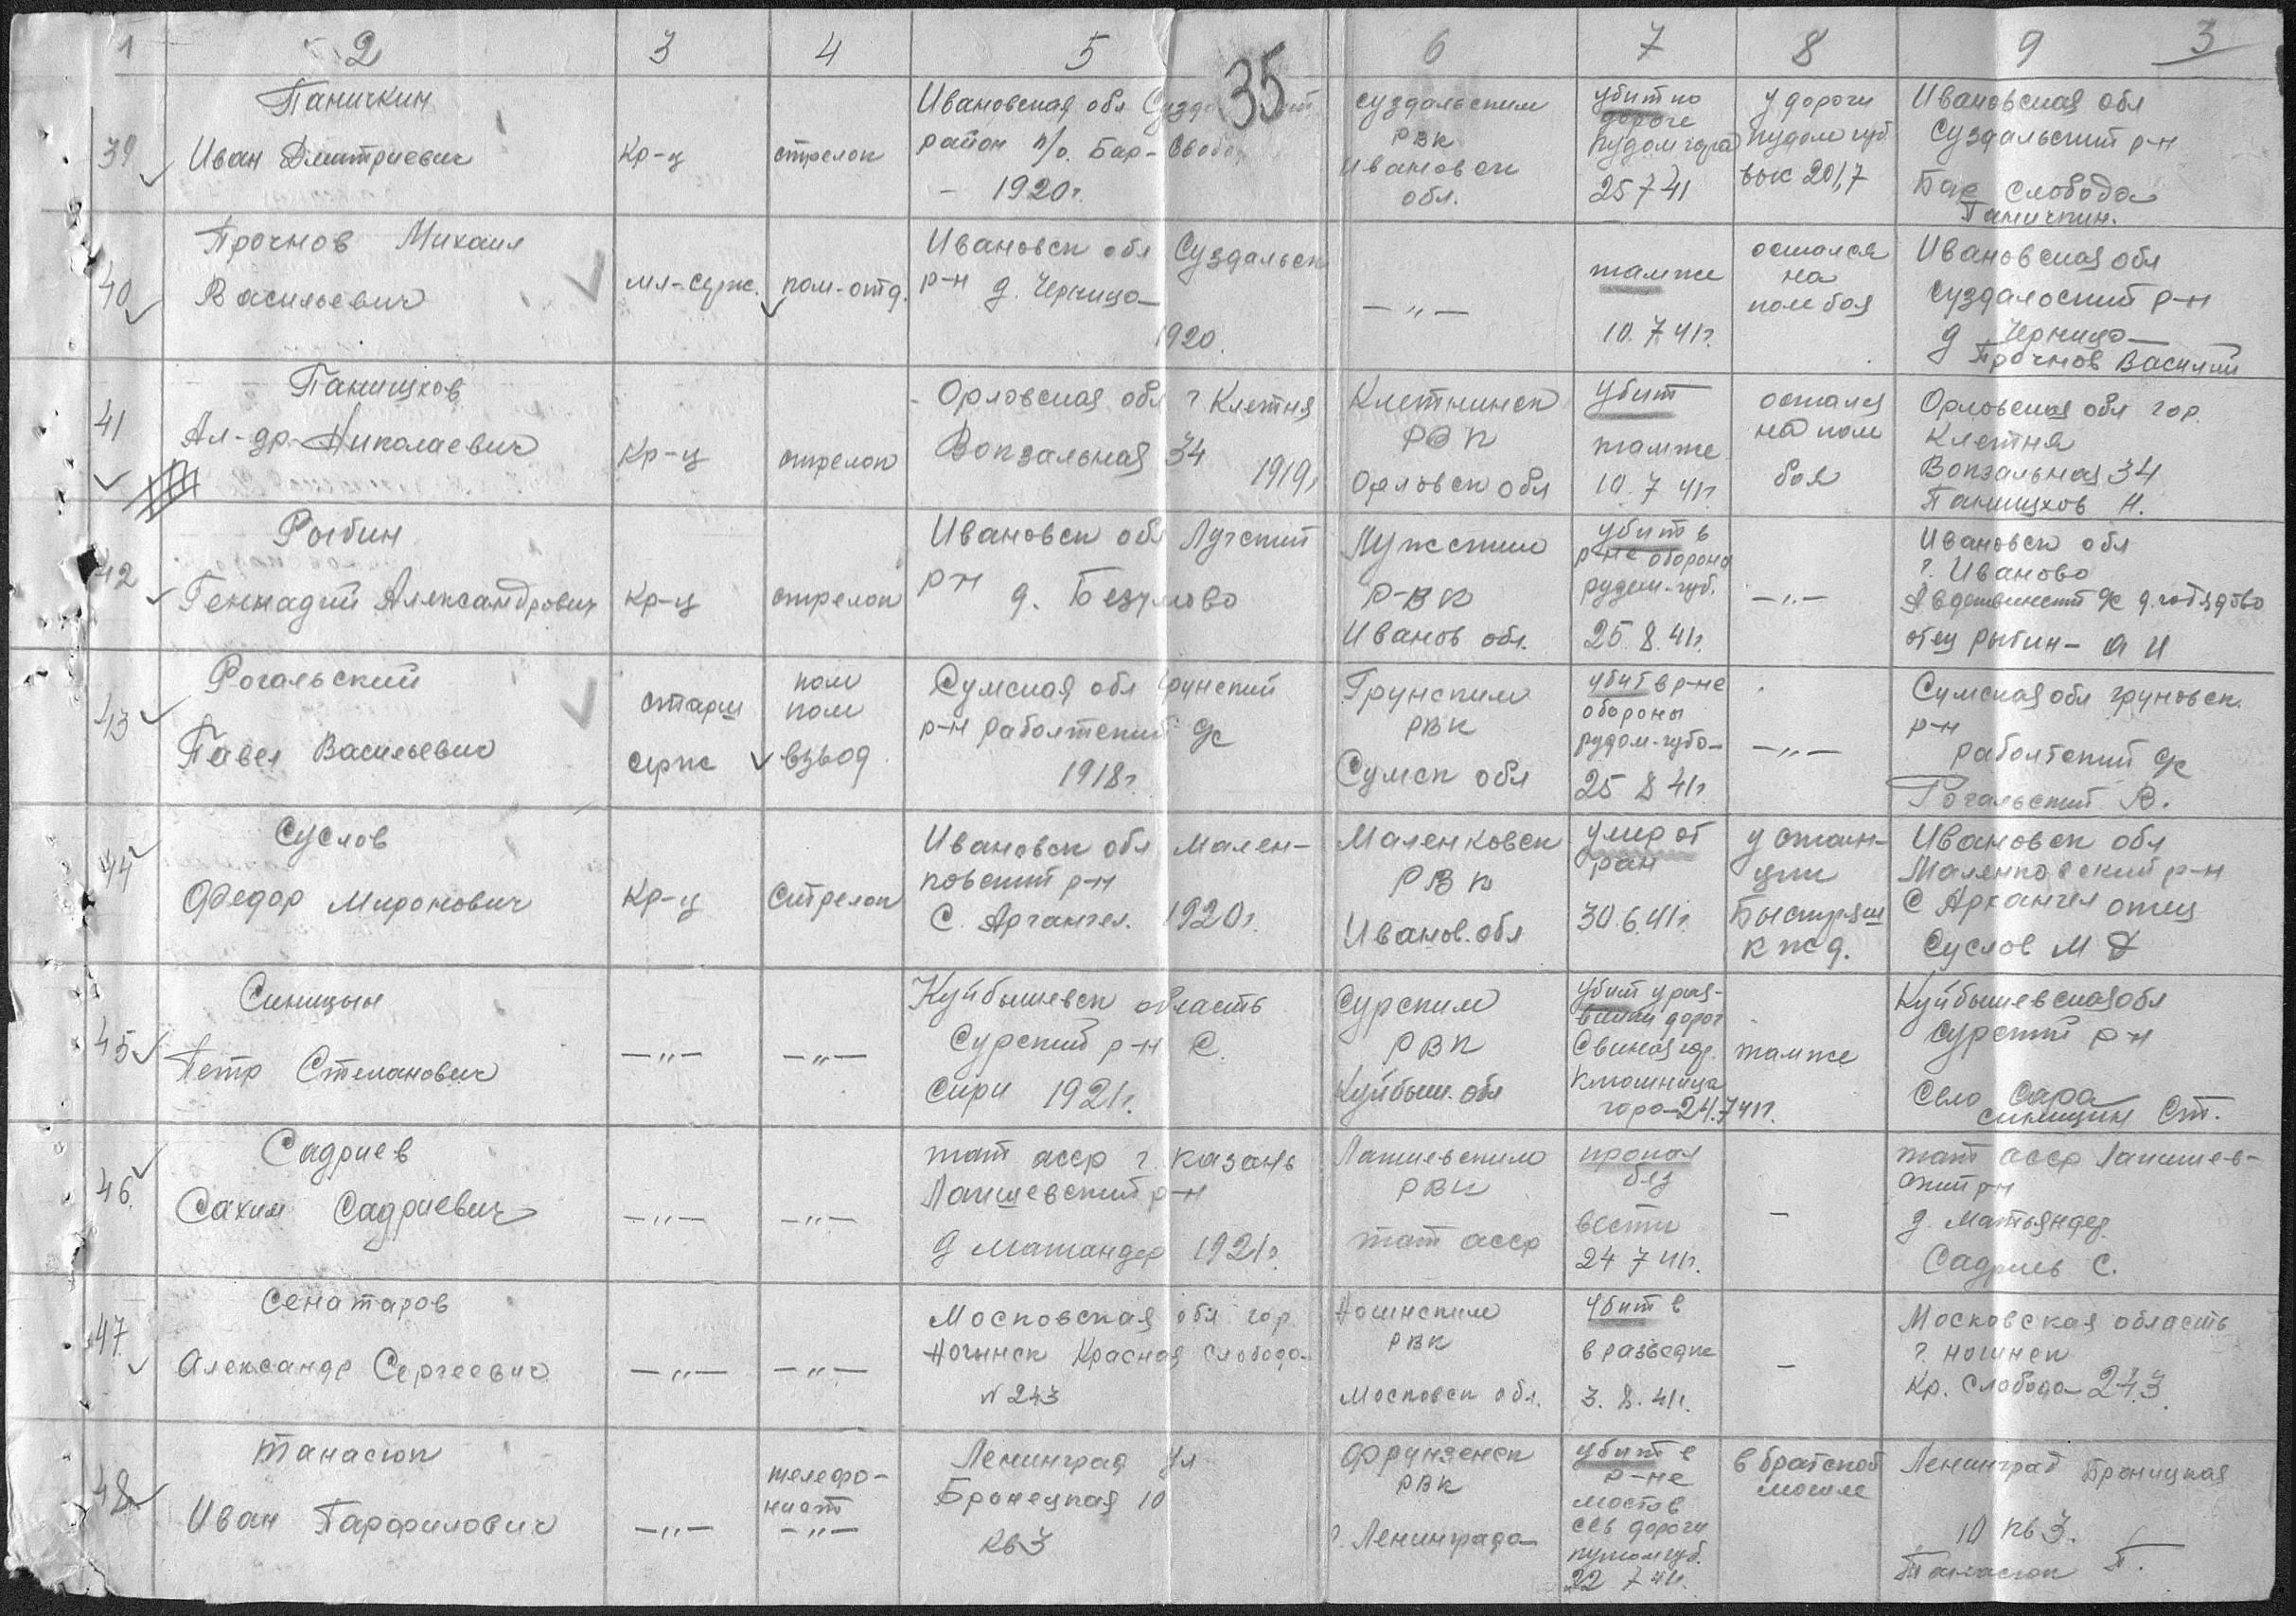 1 2 3 4 5 6 7 8 9 3
35
39 Паничкин
Иван Дмитриевич
кр-ц
стрелок
Ивановская обл
район п/о. Бар-
- 1920г.
суздальским
РВК
Ивановск
обл.
убит по
дороге
25 7 41
у дороги
выс 201,7
Ивановская обл
Суздальский р-н
слобода
Паничкин.
40 Прочнов Михаил
Васильевич
мл-серж.
пом-отд.
Ивановск обл Суздальск
р-н д. Черницо
1920
— " —
там же
10. 7 41г.
остался
на
поле боя
Ивановская обл
Суздальский р-н
д Черницо
Прочнов Василий
41 Панищхов
Ал-др-Николаевич
кр-ц
стрелок
Орловская обл г Клетня
Вокзальная 34
1919г
Клетнинск
РВК
Орловск обл
убит
там же
10. 7 41г
остался
на поле
боя
Орловская обл гор.
Клетня
Вокзальная 34
Панищхов Н.
42 Рыбин
Геннадий Александрович
кр-ц
стрелок
Ивановск обл Лухский
р-н д. Безумово
РВК
Иванов обл.
убит в
р-не обороно
25. 8. 41г.
— " —
Ивановск обл
г. Иваново
отец Рыбин- А И
43 Рогальский
Павел Васильевич
старш
серж
пом
пом
взвод
Сумская обл Грунский
р-н
1918г.
Грунским
РВК
Сумск обл
убит в р-не
обороны
25 8 41г.
— " —
Сумская обл груновск.
р-н
Рогальский В.
44 Суслов
Федор Миронович
кр-ц
Стрелок
Ивановск обл Мален-
ковский р-н
С. Архангел. 1920г.
Маленковск
РВК
Иванов. обл
умер от
ран
30. 6. 41г.
у стан-
ции
к ж д.
Ивановск обл
Маленковский р-н
С Архангел отец
Суслов М
45 Синицын
Петр Степанович
— " —
— " —
Куйбышевск область
Сурский р-н С.
Сири 1921г.
Сурским
РВК
Куйбыш. обл
убит
гора-24. 7 41г.
там же
Куйбышевская обл
Сурский р-н
Село Сара
Синицин Ст.
46. Садриев
Сахим Садриевич
— " —
— " —
тат асср г. Казань
Лаишевский р-н
д Матандер 1921г.
Лаишевским
РВК
тат асср
пропал
без
вести
24 7 41г.
—
тат асср Лаишев-
ский р-н
д. Матьяндер
Садриев С.
47. Сенатаров
Александр Сергеевич
— " —
— " —
Московская обл гор.
Ногинск Красная слобода
N 243
Ногинским
РВК
Московск обл.
убит в
в разведке
3. 8. 41г.
—
Московская область
г. Ногинск
кр. слобода 243
48 Танасюк
Иван Парфилович
— " —
телефо-
нист
— " —
Ленинград ул
Бронецкая 10
кв 3
Фрунзенск
РВК
г. Ленинграда
убит в
р-не
моста в
дороги
22 7 41г.
в братской
могиле
Ленинград Броницкая
10 кв 3.
Танасюк П.